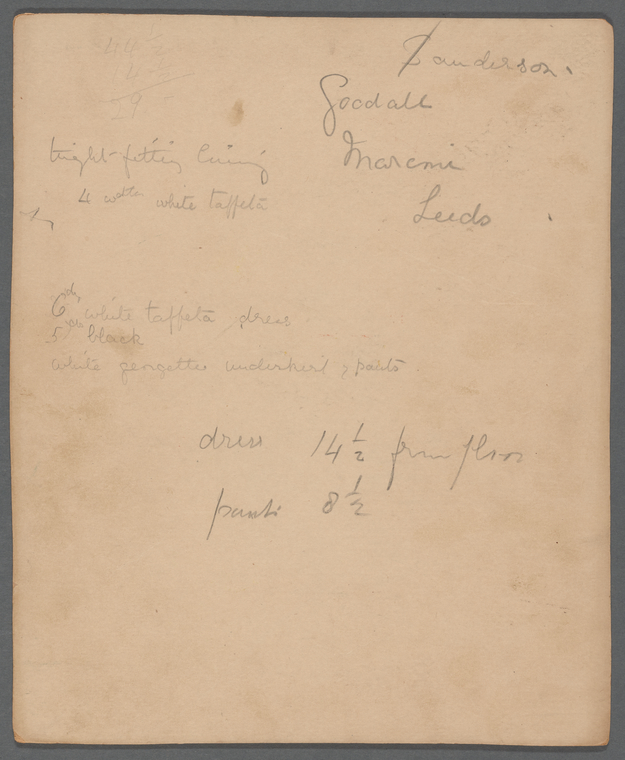 44 1/2
29
Sanderson.
Goodall
Marconi
Leeds
tight-fitting lining
4 white taffeta
6 yds white taffeta dress
5 yds black
white georgette underskirt & pants
dress 14 1/2 from floor
pants 8 1/2